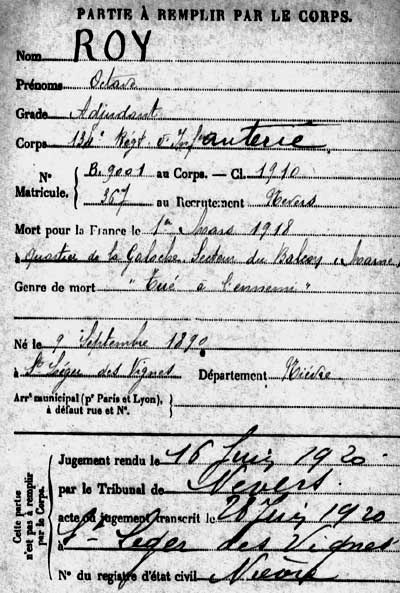 PARTIE À REMPLIR PAR LE CORPS.
Nom ROY
Prénoms Octave
Grade Adjudant
Corps 134e Régt d'Infanterie
N° Matricule. { B.9001 au Corps. — Cl. 1910
367 au Recrutement Nevers
Mort pour la France le 1er Mars 1918
à Quartier de la Galoche. Secteur du Balcon, Marne,
Genre de mort "Tué à l'ennemi"
Né le 9 Septembre 1890
à St Léger des Vignes Département Nièvre
Arrt municipal (pr Paris et Lyon), à défaut rue et N°. }
Cette partie n'est pas à remplir par le Corps.
Jugement rendu le 16 Juin 1920
par le Tribunal de Nevers.
acte ou jugement transcrit le 28 Juin 1920
à St Léger des Vignes
N° du registre d'état civil Nièvre